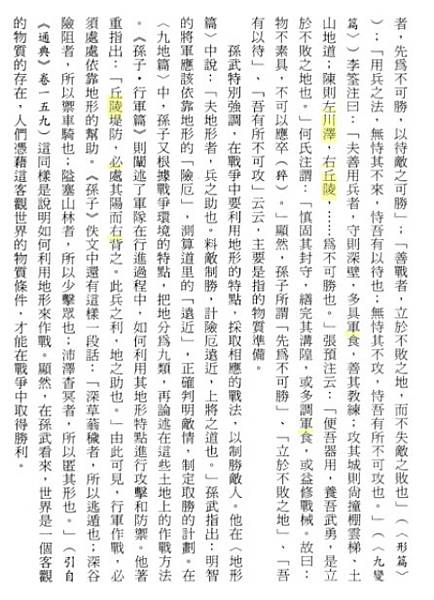 者，先爲不可勝，以待敵之可勝」；「善戰者，立於不敗之地，而不失敵之敗也」（〈形篇〉
）；「用兵之法，無恃其不來，恃吾有以待也；無恃其不攻，恃吾有所不可攻也。」（〈九變
篇〉）李筌注曰：「夫善用兵者，守則深壁，多具軍食，善其教練；攻其城則尚撞棚雲梯、土
山地道；陳則左川澤，右丘陵，……爲不可勝也。」張預注云：「便吾器用，養吾武勇，是立
於不敗之地也。」何氏注謂：「慎固其封守，繕完其溝隍，或多調軍食，或益修戰械。故曰：
物不素具，不可以應卒（猝）。」顯然，孫子所謂「先爲不可勝」、「立於不敗之地」、「吾
有以待」、「吾有所不可攻」云云，主要是指的物質準備。
孫武特別強調，在戰爭中要利用地形的特點，採取相應的戰法，以制勝敵人。他在〈地形
篇〉中說：「夫地形者，兵之助也。料敵制勝，計險厄遠近，上將之道也。」孫武指出：明智
的將軍應該依靠地形的「險厄」，測算道里的「遠近」，正確判明敵情，制定取勝的計劃。在
〈九地篇〉中，孫子又根據戰爭環境的特點，把地分爲九類，再論述在這些土地上的作戰方法
。《孫子·行軍篇》則闡述了軍隊在行進過程中，如何利用其地形特點進行攻擊和防禦。他著
重指出：「丘陵堤防，必處其陽而右背之。此兵之利，地之助也。」由此可見，行軍作戰，必
須處處依靠地形的幫助。《孫子》佚文中還有這樣一段話：「深草蓊穢者，所以逃遁也；深谷
險阻者，所以禦車騎也；隘塞山林者，所以少擊眾也；沛澤杳冥者，所以匿其形也。」（引自
《通典》卷一五九）這同樣是說明如何利用地形來作戰。顯然，在孫武看來，世界是一個客觀
的物質的存在，人們憑藉這客觀世界的物質條件，才能在戰爭中取得勝利。